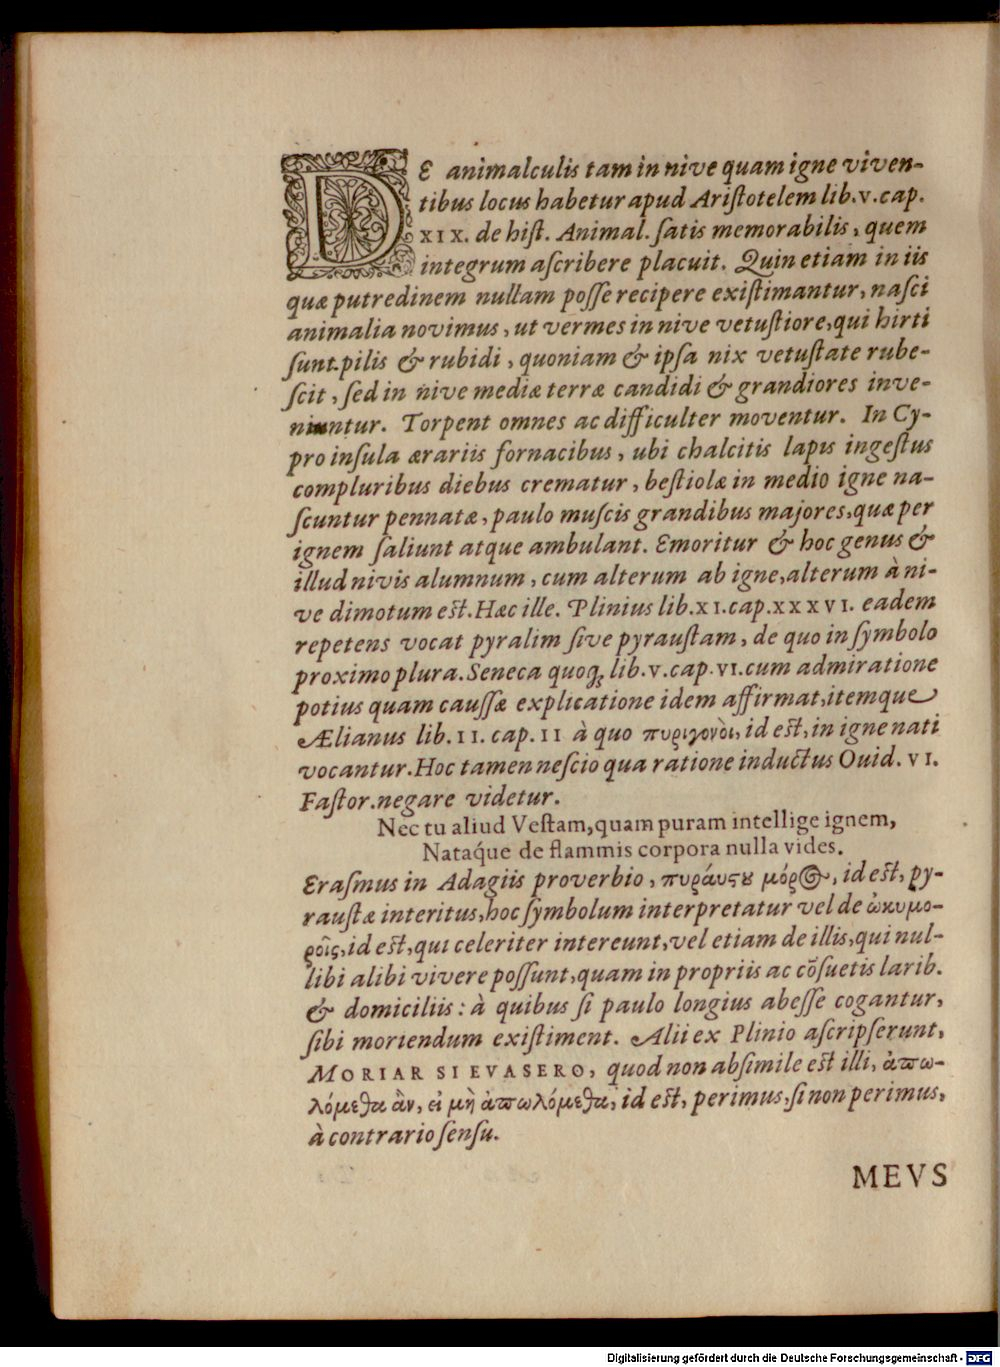 DE animalculis tam in nive quam igne viven-
tibus locus habetur apud Aristotelem lib. v. cap.
XIX. de hist. Animal. satis memorabilis, quem
integrum ascribere placuit. Quin etiam in iis
quæ putredinem nullam posse recipere existimantur, nasci
animalia novimus, ut vermes in nive vetustiore, qui hirti
sunt pilis & rubidi, quoniam & ipsa nix vetustate rube-
scit, sed in nive mediæ terræ candidi & grandiores inve-
niuntur. Torpent omnes ac difficulter moventur. In Cy-
pro insula ærariis fornacibus, ubi chalcitis lapis ingestus
compluribus diebus crematur, bestiolæ in medio igne na-
scuntur pennatæ, paulo muscis grandibus majores, quæ per
ignem saliunt atque ambulant. Emoritur & hoc genus &
illud nivis alumnum, cum alterum ab igne, alterum à ni-
ve dimotum est. Hæc ille. Plinius lib. XI. cap. XXXVI. eadem
repetens vocat pyralim sive pyraustam, de quo in symbolo
proximo plura. Seneca quoq; lib. v. cap. VI. cum admiratione
potius quam caussæ explicatione idem affirmat, itemque
Ælianus lib. II. cap. II à quo πυριγονὸι, id est, in igne nati
vocantur. Hoc tamen nescio qua ratione inductus Ouid. VI.
Fastor. negare videtur.
Nec tu aliud Vestam, quam puram intellige ignem,
Natáque de flammis corpora nulla vides.
Erasmus in Adagiis proverbio, πυράυςου μόρος, id est, py-
raustæ interitus, hoc symbolum interpretatur vel de ὠκυμο-
ροῖς, id est, qui celeriter intereunt, vel etiam de illis, qui nul-
libi alibi vivere possunt, quam in propriis ac cõsuetis larib.
& domiciliis: à quibus si paulo longius abesse cogantur,
sibi moriendum existiment. Alii ex Plinio ascripserunt,
MORIAR SI EVASERO, quod non absimile est illi, ἀπω-
λόμεθα ἂν, εἰ μὴ ἀπωλόμεθα, id est, perimus, si non perimus,
à contrario sensu.
MEVS
Digitalisierung gefördert durch die Deutsche Forschungsgemeinschaft - DFG